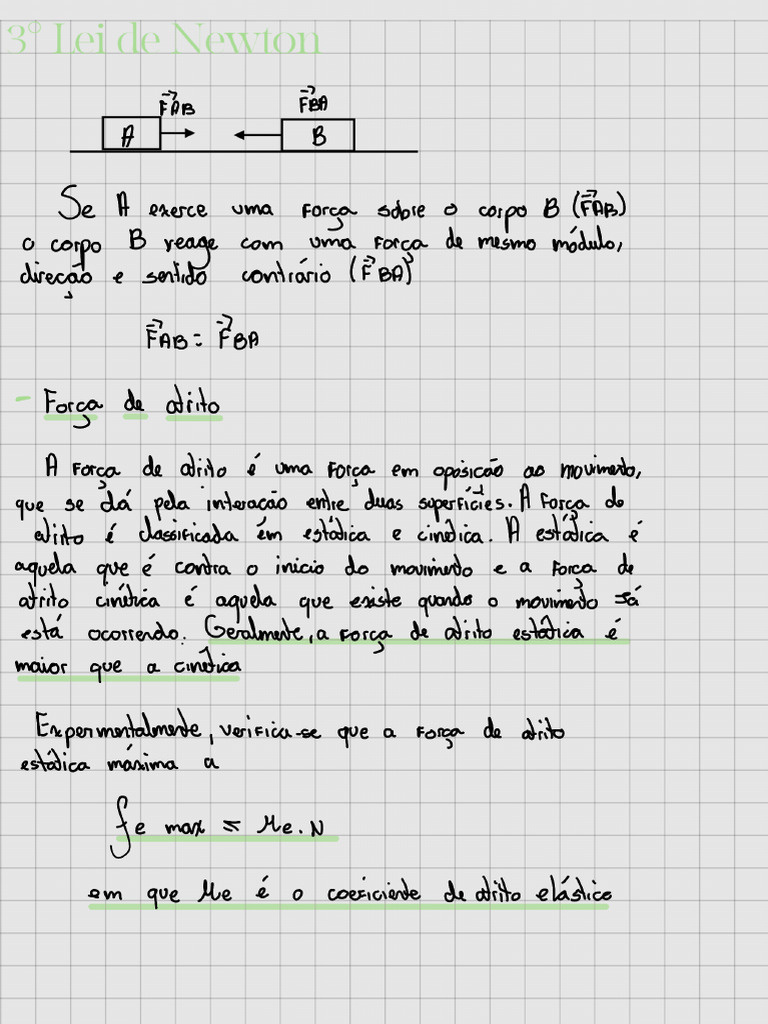 3° Lei de Newton
F⃗AB F⃗BA
A B
Se A exerce uma força sobre o corpo B (F⃗AB)
o corpo B reage com uma força de mesmo módulo,
direção e sentido contrário (F⃗BA)
F⃗AB = F⃗BA
- Força de atrito
A força de atrito é uma força em oposição ao movimento,
que se dá pela interação entre duas superfícies. A força de
atrito é classificada em estática e cinética. A estática é
aquela que é contra o inicio do movimento e a força de
atrito cinética é aquela que existe quando o movimento já
está ocorrendo. Geralmente, a força de atrito estática é
maior que a cinética
Experimentalmente, verifica-se que a força de atrito
estática máxima a
fe max = μe . N
em que μe é o coeficiente de atrito elástico